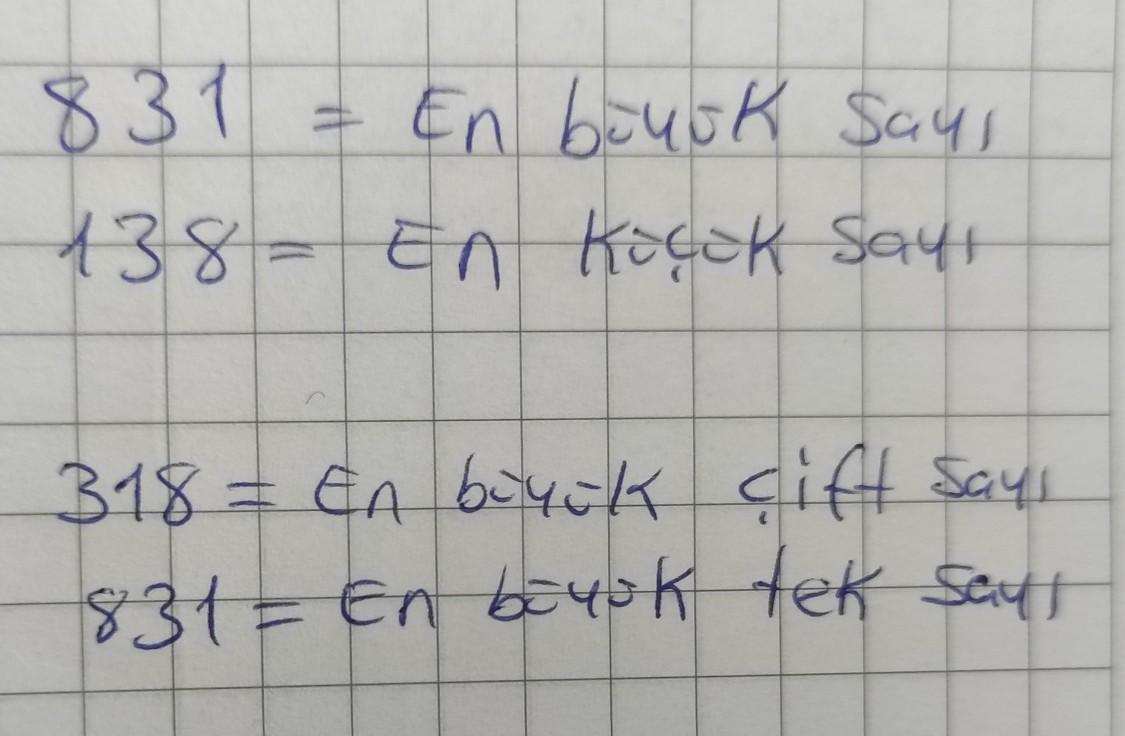 831 = En büyük sayı
138 = En küçük sayı
318 = En büyük çift sayı
831 = En büyük tek sayı